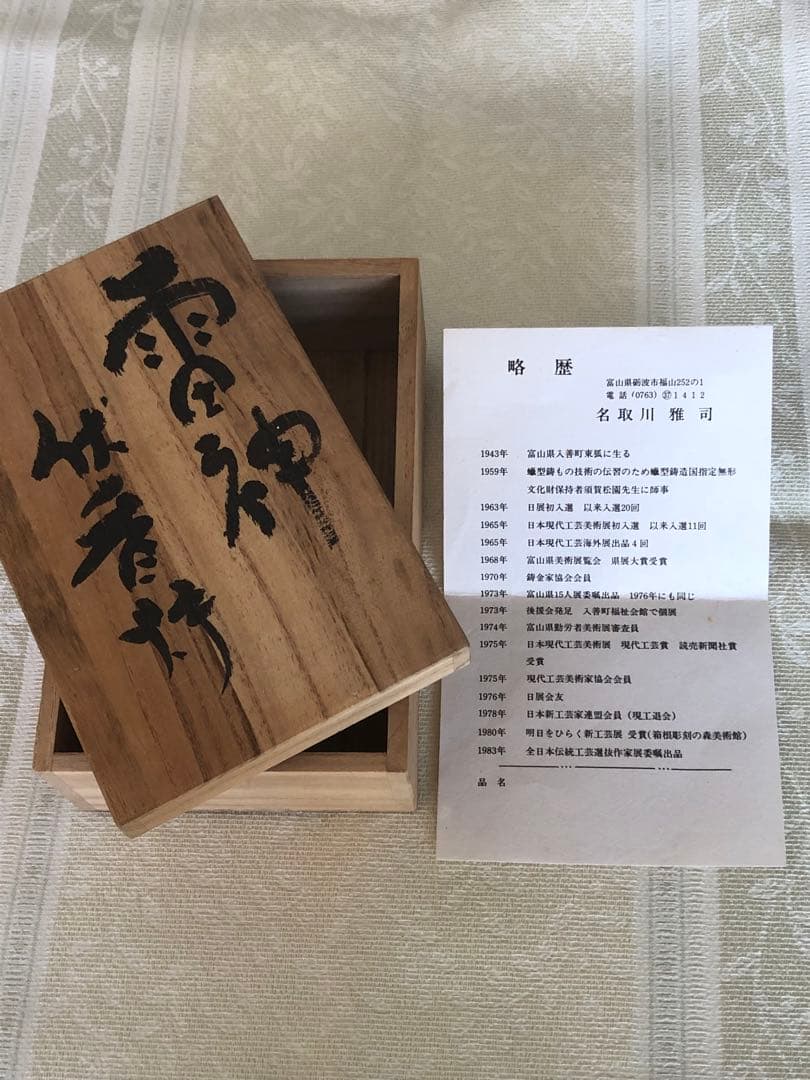 雷神
香炉
略 歴
富山県砺波市福山252の1
電話(0763)㊲1412
名取川雅司
1943年 富山県入善町東狐に生る
1959年 蠟型鋳もの技術の伝習のため蠟型鋳造国指定無形
文化財保持者須賀松園先生に師事
1963年 日展初入選 以来入選20回
1965年 日本現代工芸美術展初入選 以来入選11回
1965年 日本現代工芸海外展出品4回
1968年 富山県美術展覧会 県展大賞受賞
1970年 鋳金家協会会員
1973年 富山県15人展委嘱出品 1976年にも同じ
1973年 後援会発足 入善町福祉会館で個展
1974年 富山県勤労者美術展審査員
1975年 日本現代工芸美術展 現代工芸賞 読売新聞社賞
受賞
1975年 現代工芸美術家協会会員
1976年 日展会友
1978年 日本新工芸家連盟会員(現工退会)
1980年 明日をひらく新工芸展 受賞(箱根彫刻の森美術館)
1983年 全日本伝統工芸選抜作家展委嘱出品
品名